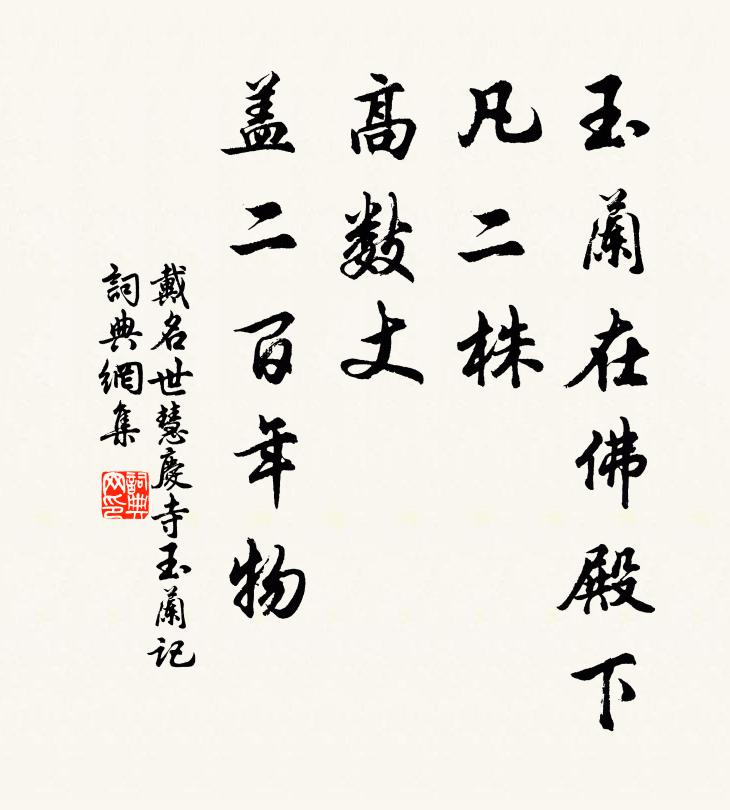 玉蘭在佛殿下
凡二株
高数丈
盖二百年物
戴名世慧慶寺玉蘭記
詞典網集
詞典网印